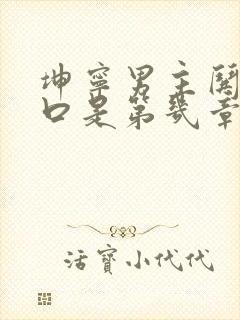 坤寧男主關
口是第幾章
活寶小代代